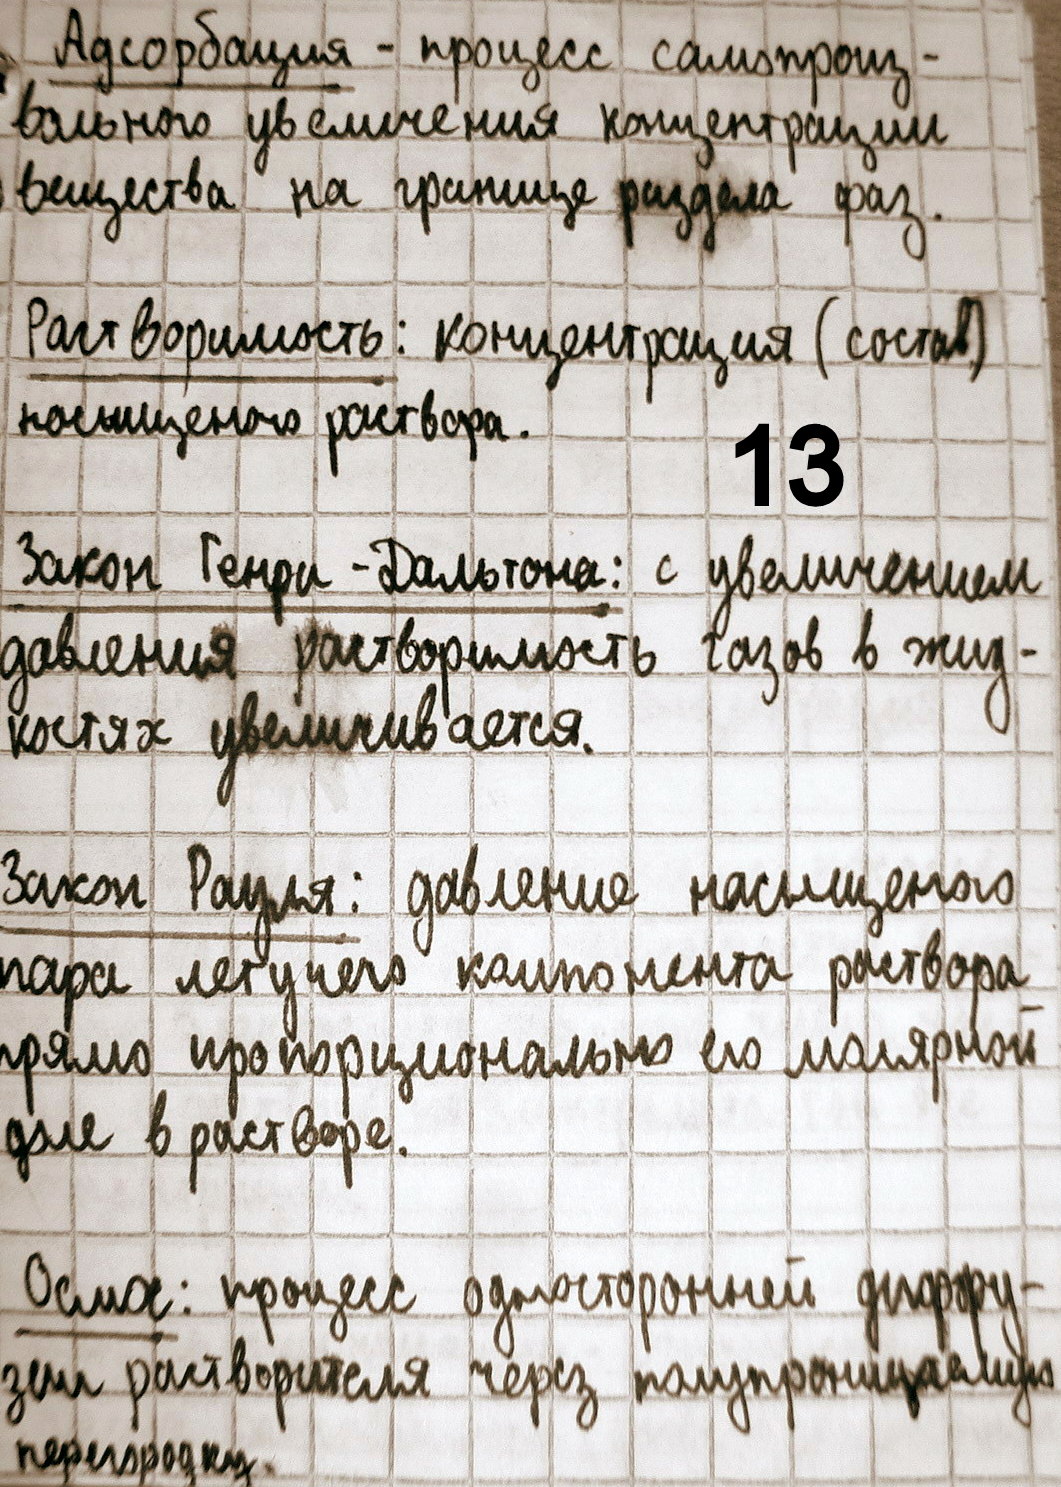 Адсорбация - процесс самопроиз-
вольного увеличения концентрации
вещества на границе раздела фаз.
Растворимость: концентрация (состав)
насыщеного раствора.
13
Закон Генри-Дальтона: с увеличением
давления растворимость газов в жид-
костях увеличивается.
Закон Рауля: давление насыщеного
пара летучего компонента раствора
прямо пропорционально его молярной
доле в растворе.
Осмос: процесс односторонней диффу-
зеи растворителя через полупроницаемую
перегородку.